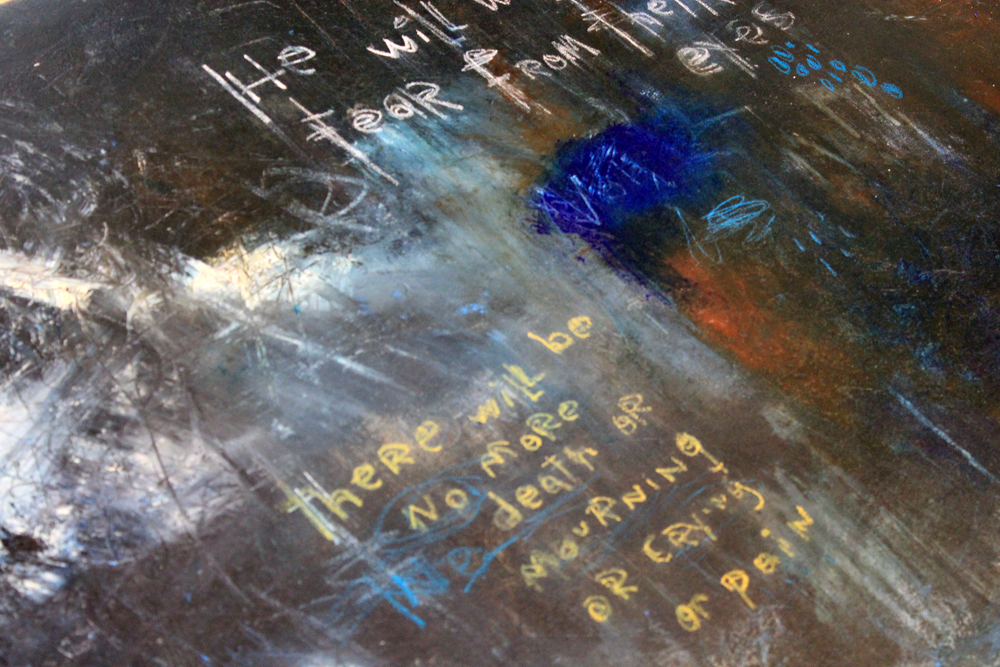 He will
tear from their
eyes
there will be
No more
death or
mourning
or crying
or pain